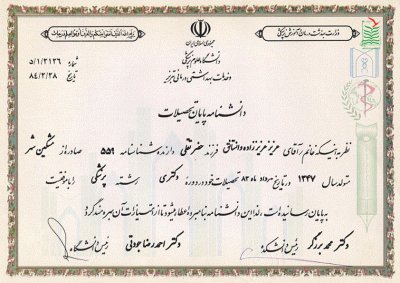 وزارت بهداشت، درمان و آموزش پزشکی
جمهوری اسلامی ایران
دانشگاه علوم پزشکی
و خدمات بهداشتی درمانی تبریز
شماره ۵/۱/۲۱۲۶
تاریخ ۸۴/۲/۲۸
دانشنامه پایان تحصیلات
نظر به اینکه خانم / آقای عزیز عزیززاده دانقلق فرزند حضرتقلی دارنده شناسنامه ۵۵۹ صادره از مشکین شهر
متولد سال ۱۳۴۷ در تاریخ مرداد ماه ۸۲ تحصیلات خود در دوره دکتری رشته پزشکی را با موفقیت
به پایان رسانیده است، لذا این دانشنامه به نامبرده اعطا میشود تا از امتیازات آن بهره مند گردد
دکتر محمد برزگر رئیس دانشکده
دکتر احمدرضا جودتی رئیس دانشگاه